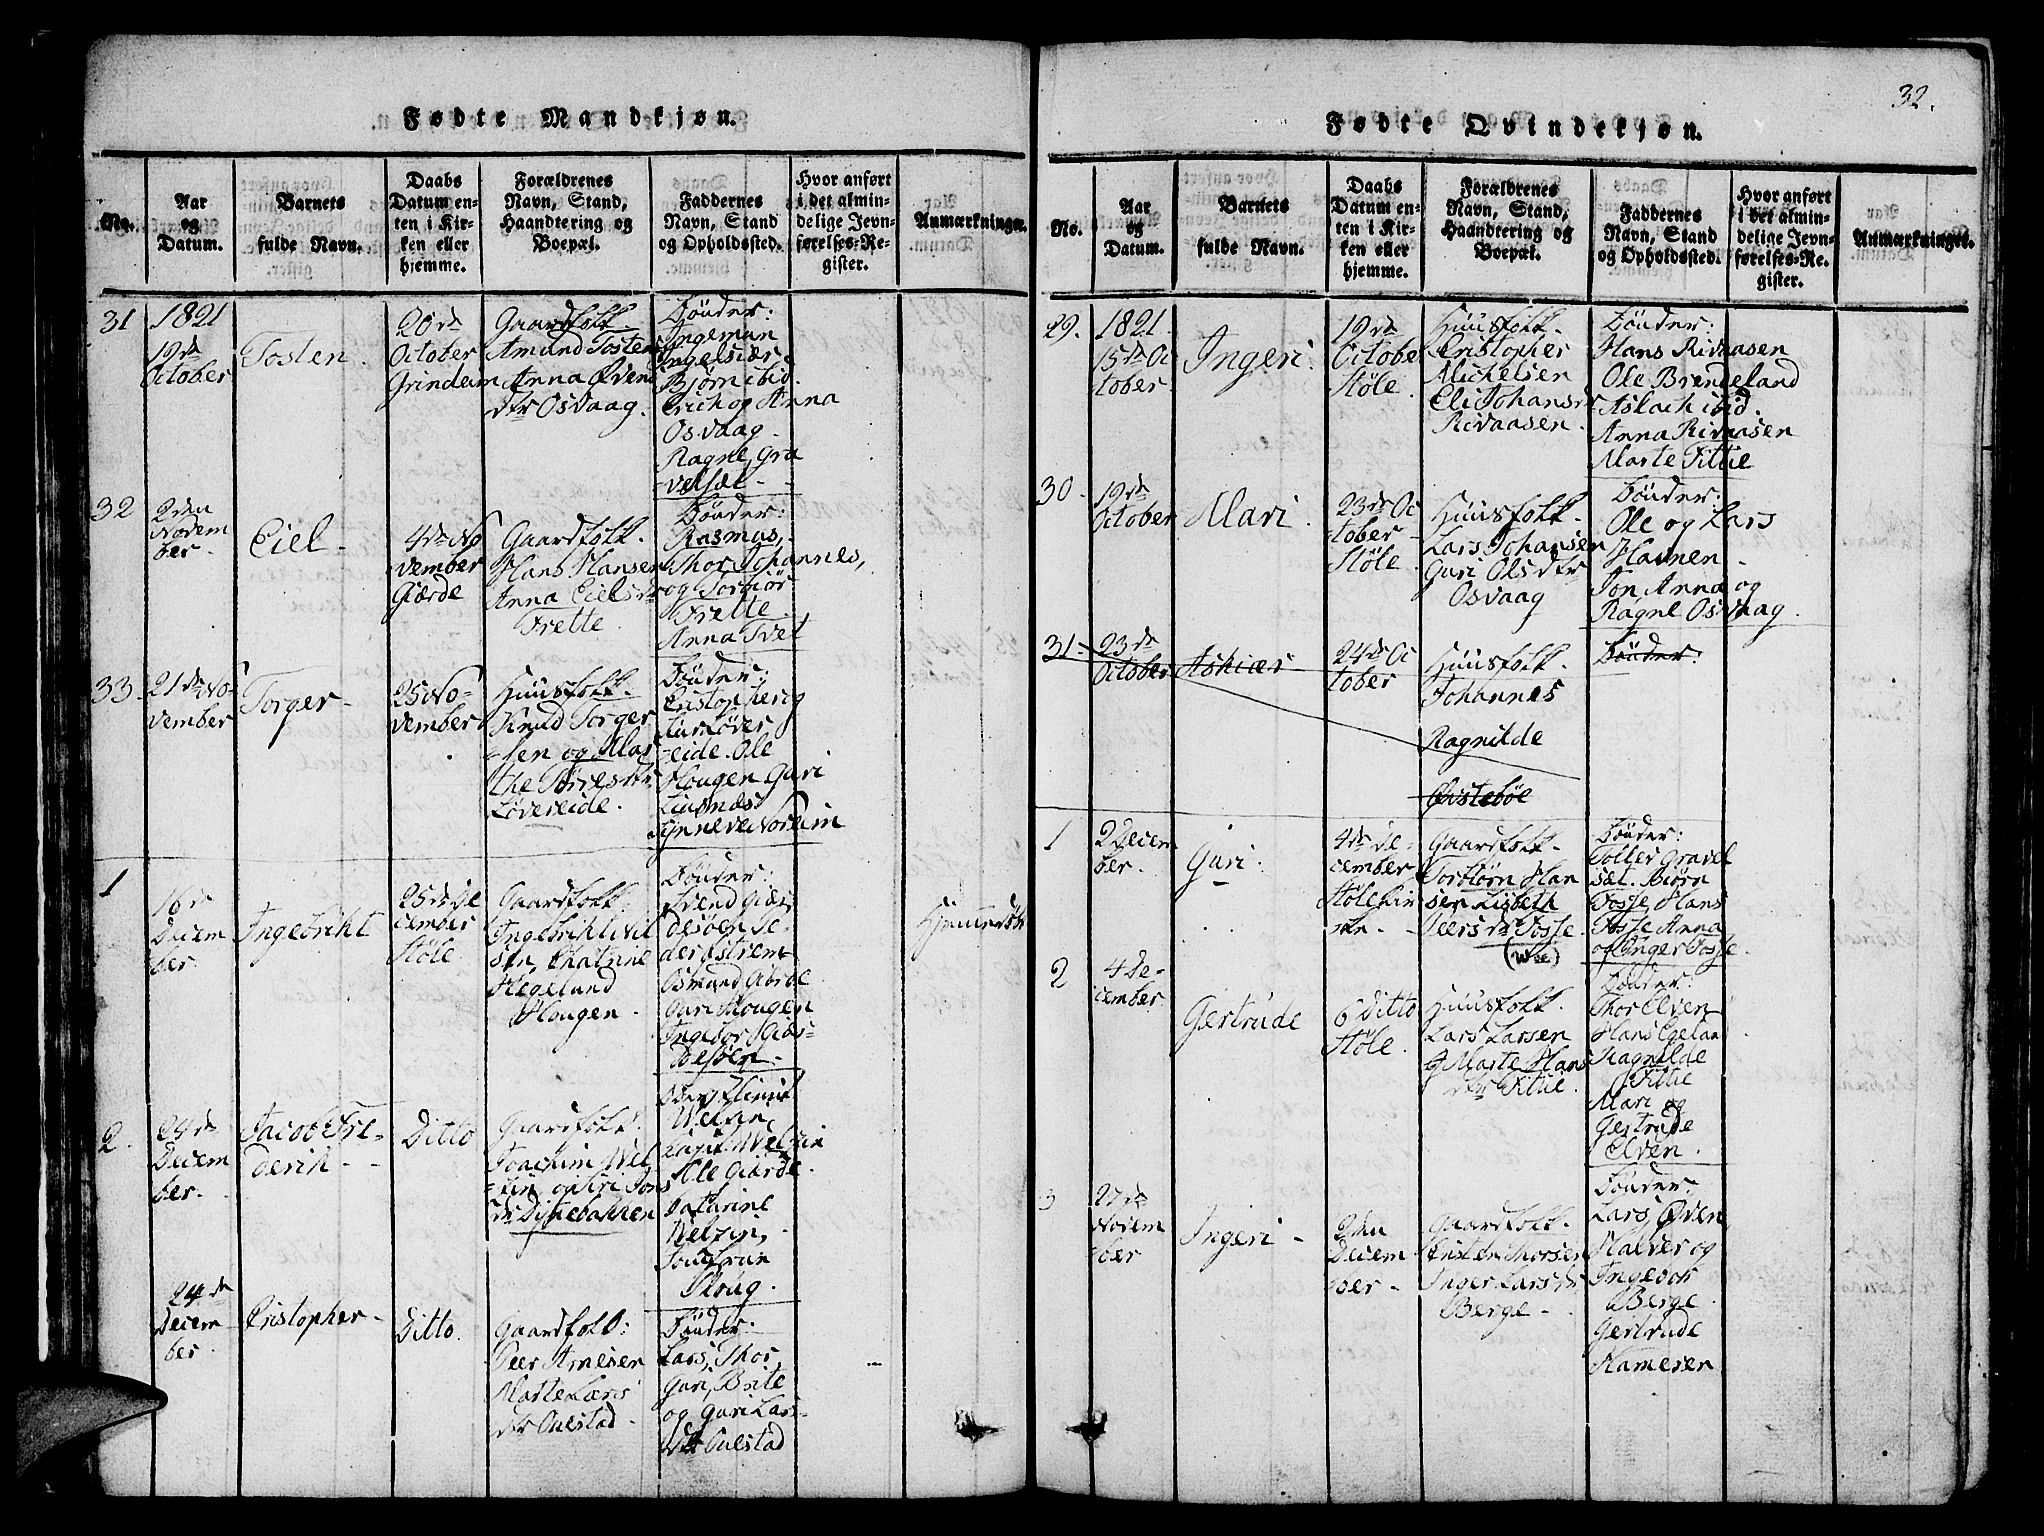 32.
Fødte Mandkjøn.
No.
Aar
og
Datum.
Barnets
fulde Navn.
Daabs
Datum en-
ten i Kir-
ken eller
hjemme.
Forældrenes
Navn, Stand,
Haandtering og
Boepæl.
Faddernes
Navn, Stand
og Opholdssted.
Hvor anført
i det almin-
delige Jevn-
førelses-Re-
gister.
Anmærkninger.
31
1821
19de
October
Tosten.
20de
October
Grindem
Gaardfolk
Amund Tostens
Anna Øvens
dtr Osvaag.
Bönder:
Ingeman
Ingelsiær
Bjørn ibid.
Erich og Anna
Osvaag.
Ragne, Gra
velsæt
32
2den
Novem
ber.
Eiel.
4de No
vember
Giærde
Gaardfolk.
Hans Hansen
Anna Eielsdr
Frette.
Bönder:
Rasmus,
Thor Johannes,
og Torbiör
Frette.
Anna Tvet
33.
21de No-
vember
Torger
25 No-
vember
Huusfolk.
Knud Torger
sen og Mar
the Törresdtr
Løvereide.
Bönder:
Cristopher og
Löver
eide. Ole
Hougen Guri
Liusnæs
Synneve Noreim
1
16de
Decem
ber.
Ingebricht
25de De
cember
Støle
Gaardfolk:
Ingebricht
sen, Chatrine
Hegeland
Hougen.
Bönder:
Svend Giær
desøen Pe-
der Østrem
Osmund Giærde
Guri Hougen
Ingebor Giær-
desøen.
2.
24de
Decem
ber.
Jacob Fre-
derik
Ditto
Gaardfolk:
Joachim Wel
tzin og Siri Jons
dr Dystebakken
Weltzin,
Capit. Weltzin
Ole Giærde
Catarine
Weltzin,
Jomfrue
Krog.
24de
Decem
ber.
Cristopher
Ditto.
Gaardfolk:
Peer Arnesen
Marte Lars
dtr Oulstad
Bönder:
Lars, Thor
Guri, Brite
og Guri Lars
dtr Oulstad
Fødte Qvindekjøn.
No.
Aar
og
Datum.
Barnets
fulde Navn.
Daabs
Datum en-
ten i Kir-
ken eller
hjemme.
Forældrenes
Navn, Stand,
Haandtering og
Boepæl.
Faddernes
Navn, Stand
og Opholdssted.
Hvor anført
i det almin-
delige Jevn-
førelses-Re-
gister.
Anmærkninger.
29.
1821.
15de Oc
tober
Ingeri.
19de
October
Støle.
Huusfolk.
Cristopher
Michelsen
Eli Johansdtr
Rivaasen.
Bönder:
Hans Rivaasen
Ole Brendeland
Aslach ibid.
Anna Rivaasen
Marte Tittie
30.
19de
October
Mari.
23de Oc
tober
Støle.
Huusfolk.
Lars Johansen
Guri Olsdtr
Osvaag
Bönder:
Ole og Lars
Havnen
Jon Anna og
Ragne Osvaag.
31
23de
October
Askiær
24de Oc
tober
Huusfolk.
Johannes
Ragnilde
Østebøe
Bönder:
1
2 Decem
ber.
Guri.
4de De-
cember
Støle Kir
ke.
Gaardfolk.
Torbiørn Han
sen Lisbeth
Peersdr Fosse.
Bönder:
Tollef Gravel
sæt. Biørn
Fosse, Hans
Fosse Anna
og Inger Fosse.
2
4 De-
cember.
Gertrude
6 Ditto
Støle.
Huusfolk.
Lars Larsen
& Marte Hans
dtr Tittie.
Bönder:
Thor Elven
Hans Egeland
Ragnilde
Tittie
Mari og
Gertrude
Elven.
3
27de
Novem
ber
Ingeri
2den
Decem
ber
Gaardfolk.
Cristen Thorsen
Inger Larsdtr
Berge
Bönder:
Lars, Øven
Halver og
Ingebor
Berge.
Gertrude
Kameren